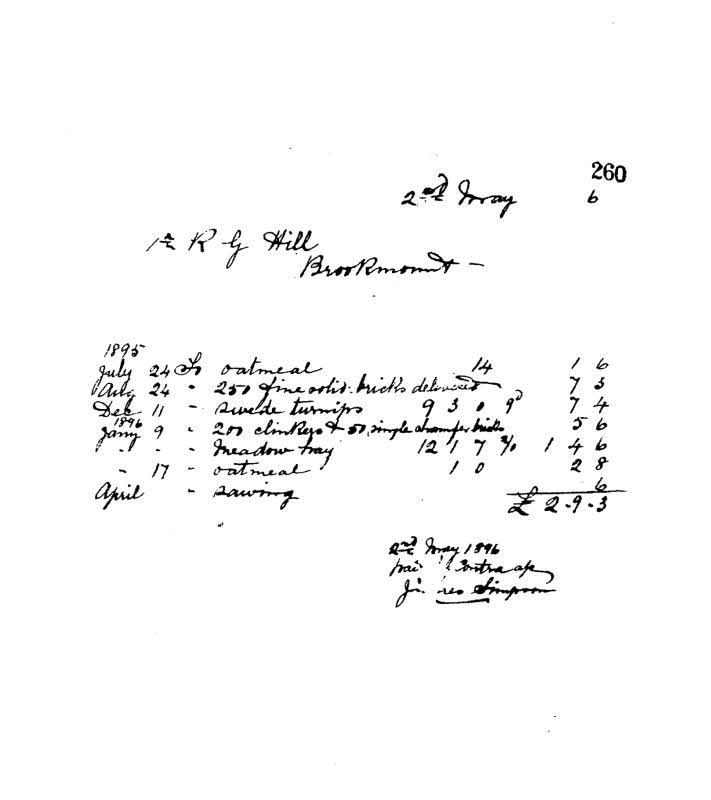 260
2nd May 6
R G Hill
Brookmount -
1895
July 24 To oatmeal 14 1 6
Aug 24 " 250 fine solid bricks delivered 7 3
Dec 11 " swede turnips 9 3 0 9d 7 4
1896
Jany 9 " 200 clinkers & 50 single chamfer bricks 5 6
" " " meadow hay 12 1 7 2/0 1 4 6
" 17 " oatmeal 1 0 2 8
April " sawing 6
£ 2-9-3
2nd May 1896
Contra
Simpson